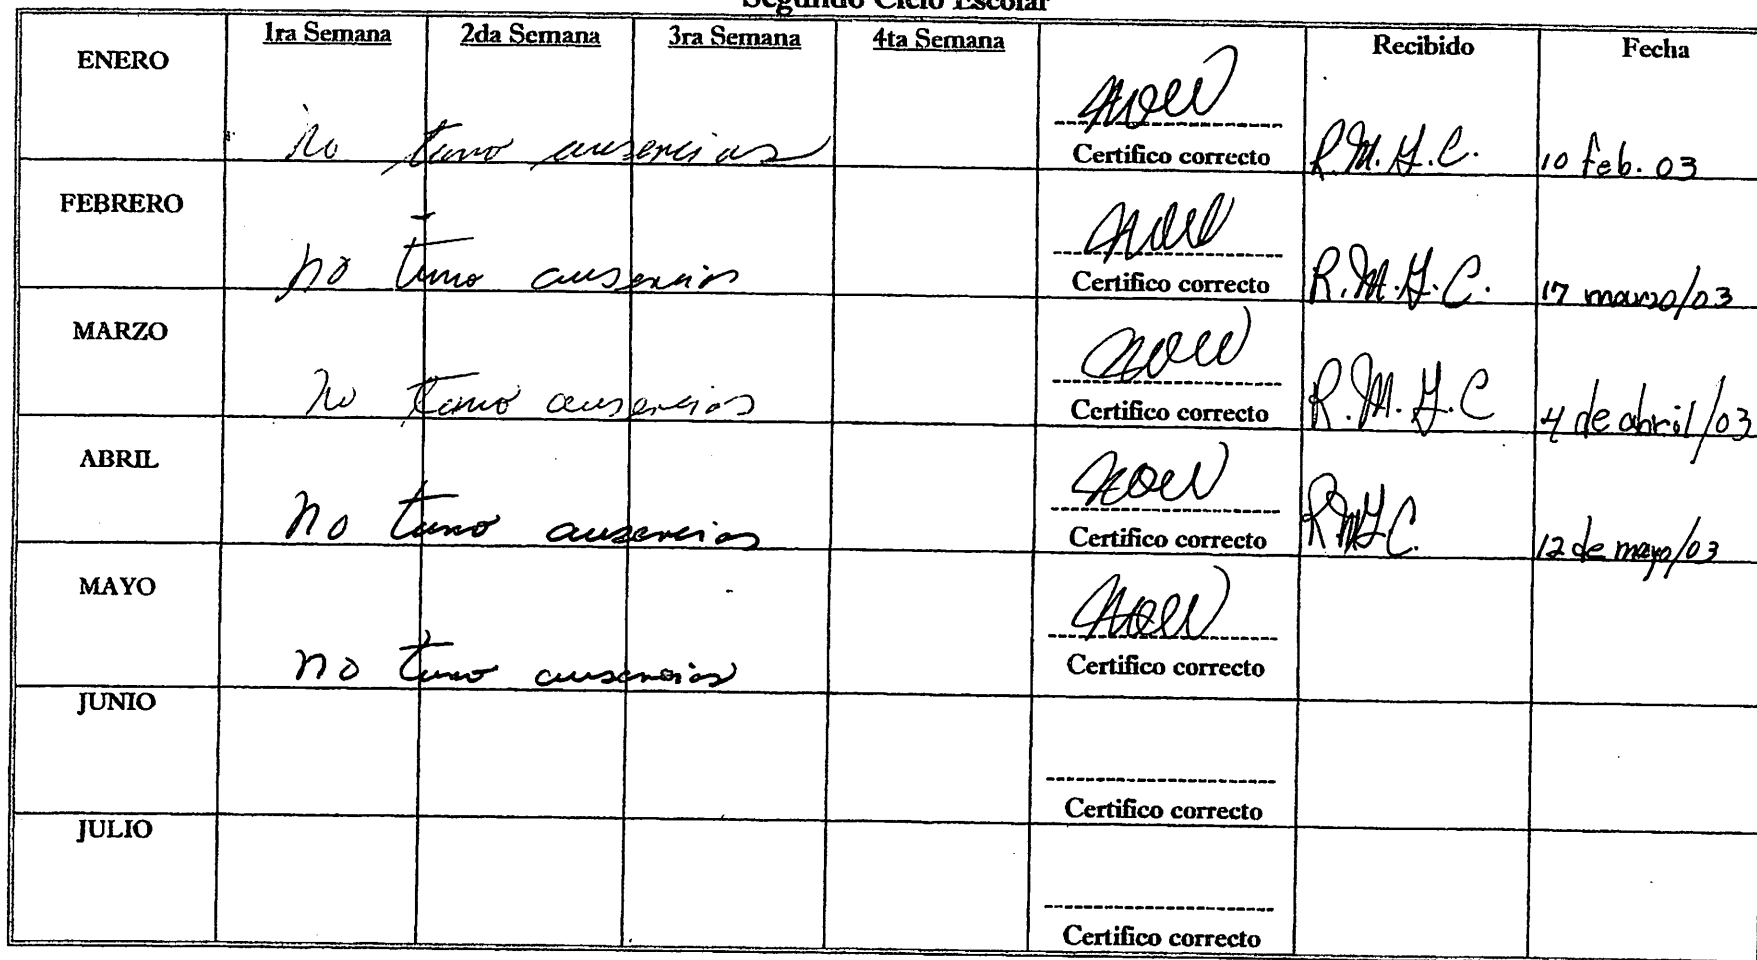 Segundo Ciclo Escolar
ENERO 1ra Semana 2da Semana 3ra Semana 4ta Semana Recibido Fecha
no tuvo ausencias Certifico correcto R.M.G.C. 10 feb. 03
FEBRERO
no tuvo ausencias Certifico correcto R.M.G.C. 17 marzo/03
MARZO
no tuvo ausencias Certifico correcto R.M.G.C 4 de abril/03
ABRIL
no tuvo ausencias Certifico correcto RMGC. 12 de mayo/03
MAYO
no tuvo ausencias Certifico correcto
JUNIO
Certifico correcto
JULIO
Certifico correcto